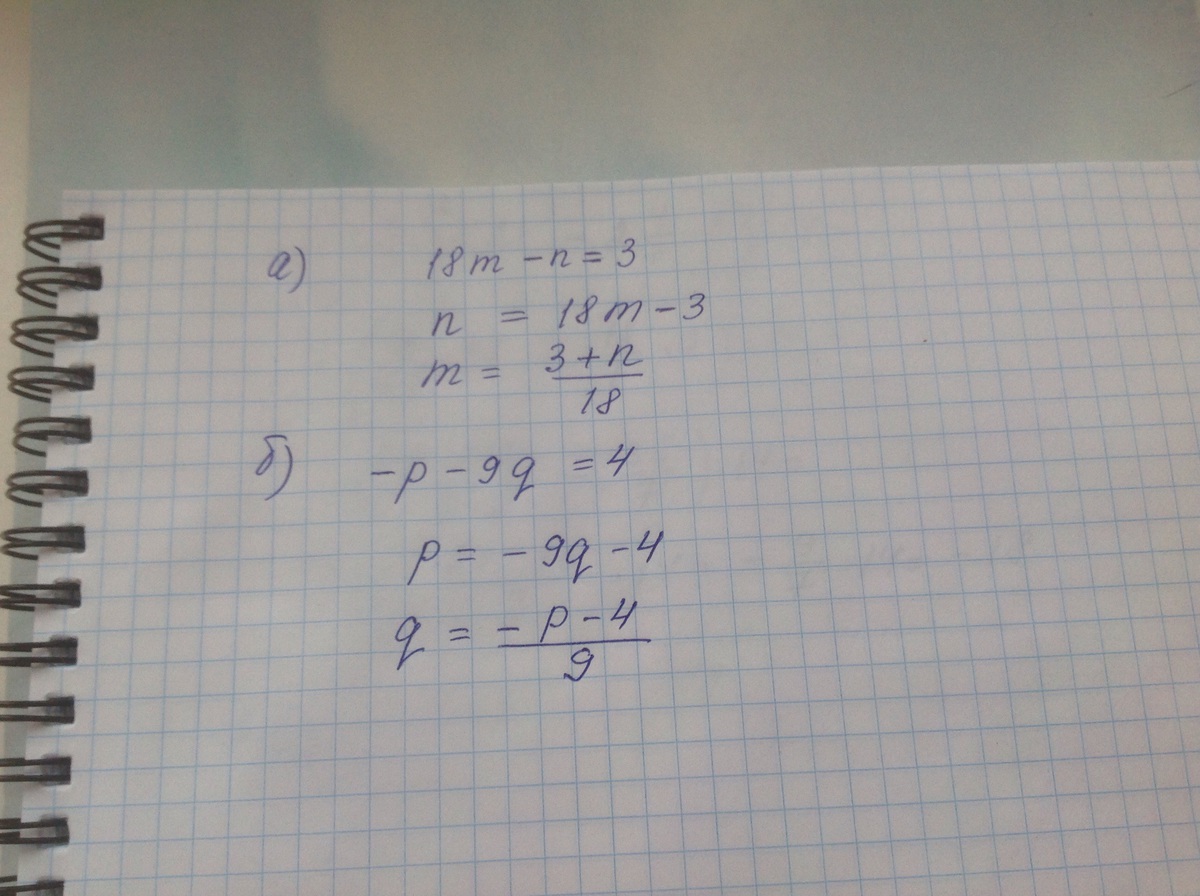 а) 18m - n = 3
n = 18m - 3
m = \frac{3 + n}{18}
б) -p - 9q = 4
p = -9q - 4
q = \frac{-p - 4}{9}